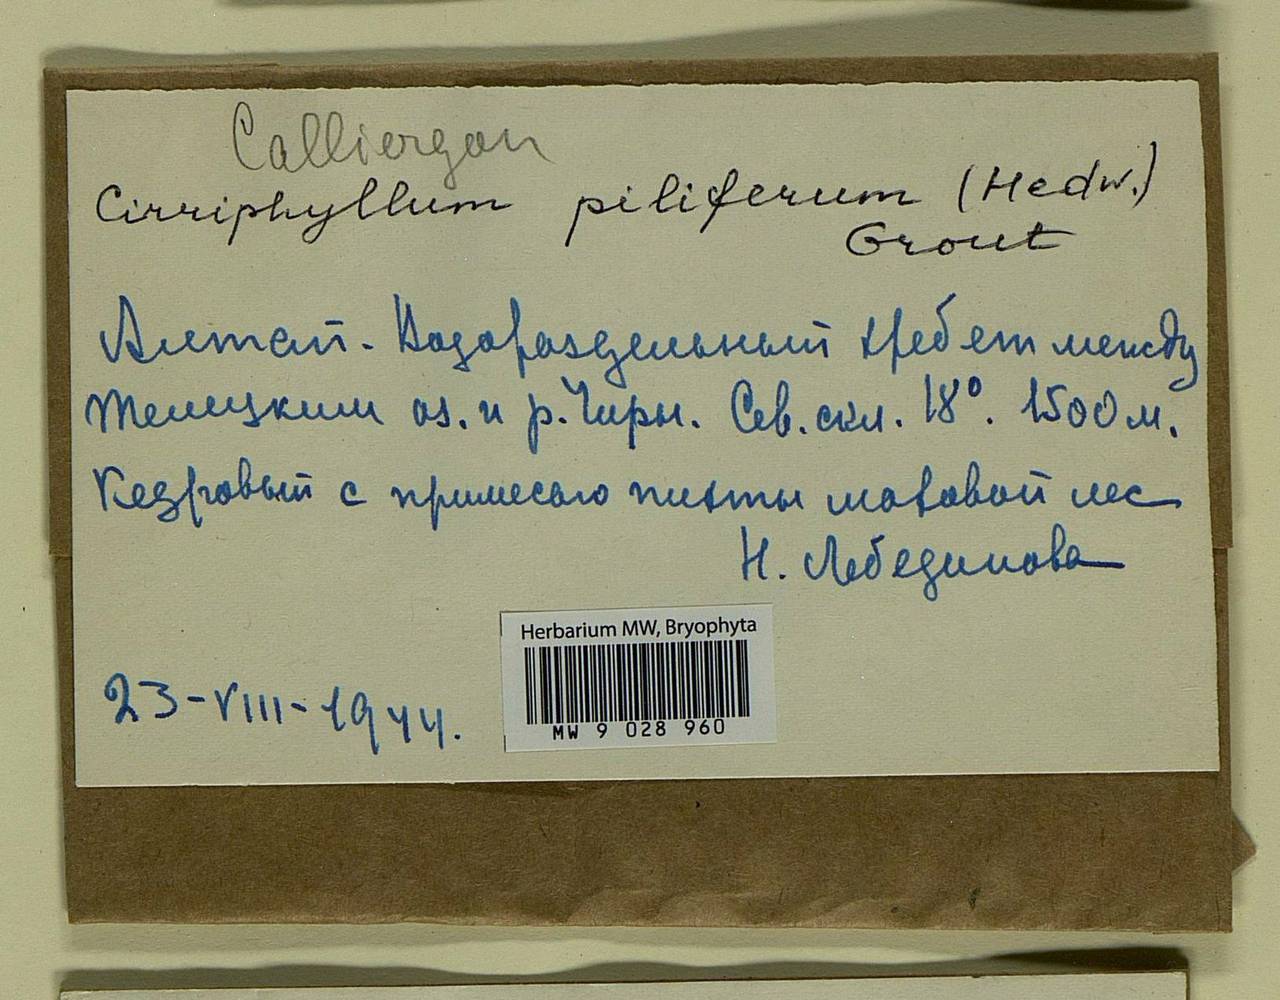 Calliergon
Cirriphyllum piliferum (Hedw.)
Grout
Алтай - Водораздельный хребет между
Телецким оз. и р. Чири. Сев. скл. 18°. 1500 м.
Кедровый с примесью пихты моховой лес
Н. Лебединова
Herbarium MW, Bryophyta
MW 9 028 960
23-VIII-1944.